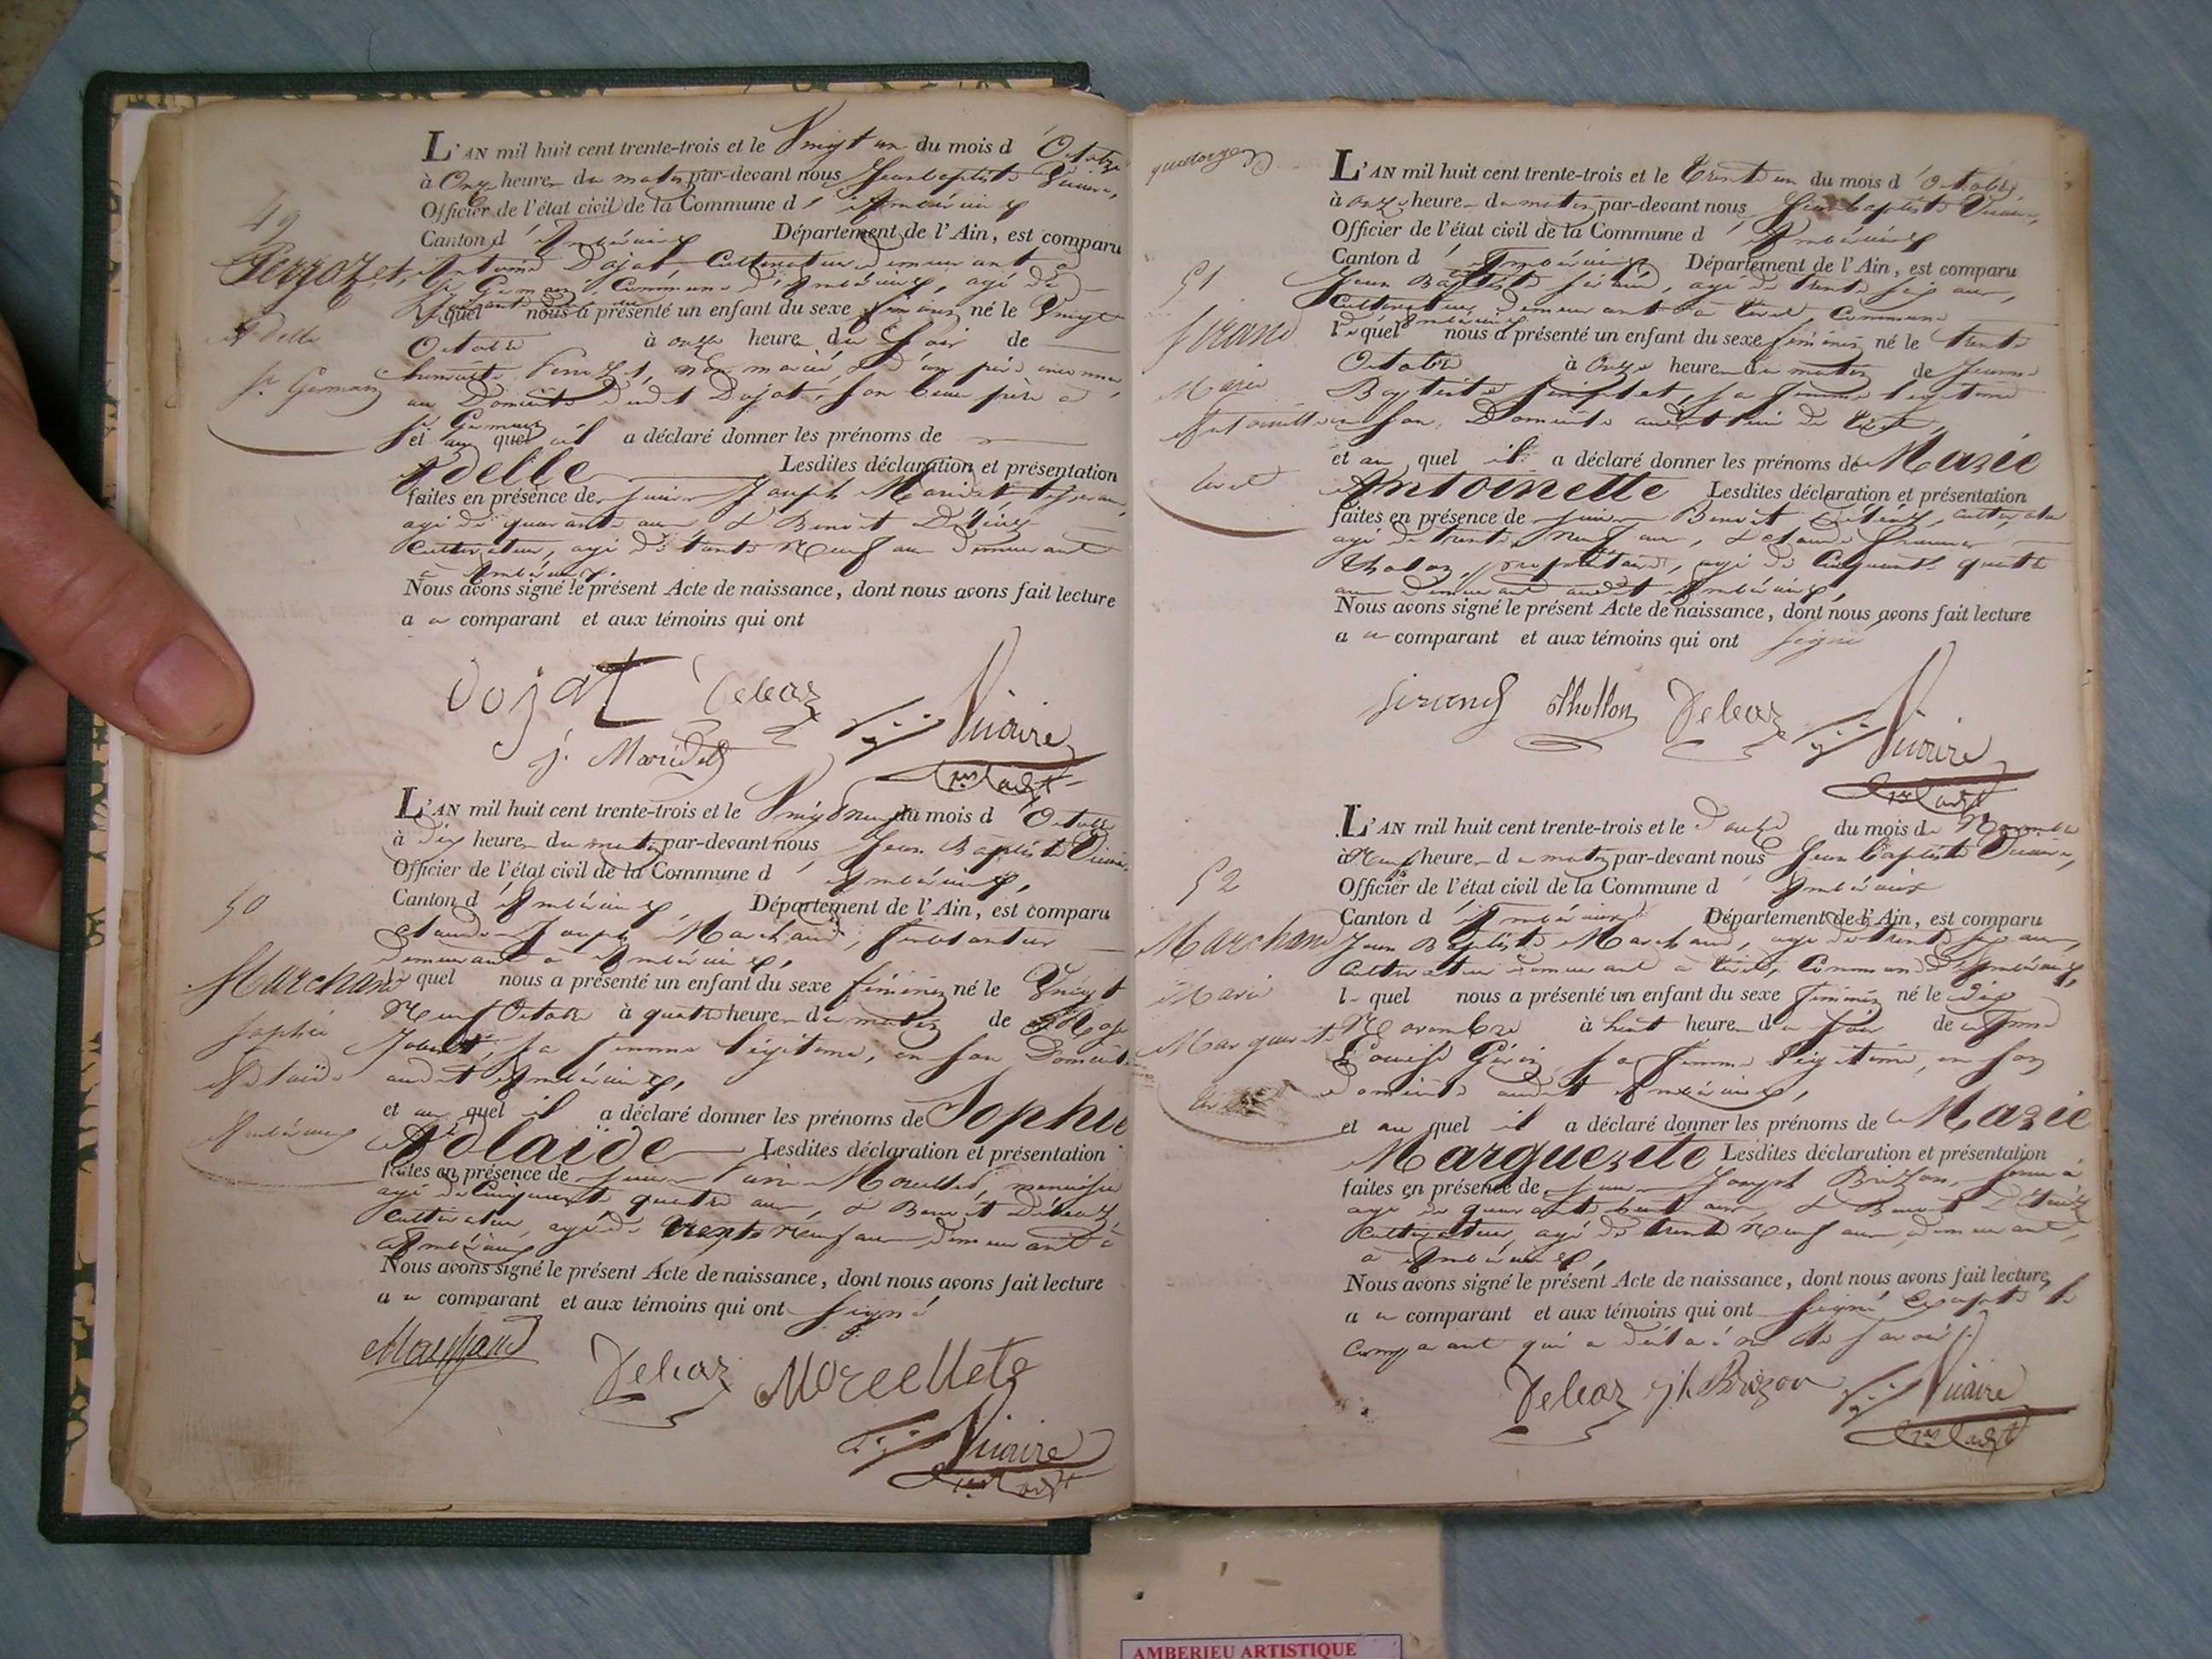 49
Perrozet,
Adelle
St. Germain
L'AN mil huit cent trente-trois et le Vingt un du mois d'Octobre
à Onze heure du matin par-devant nous Jean baptiste Vicaire,
Officier de l'état civil de la Commune d'Ambérieux
Canton d'Ambérieux Département de l'Ain, est comparu
Antoine Dojat, Cultivateur demeurant à
St Germain Commune d'Ambérieux, agé de
lequel nous a présenté un enfant du sexe féminin né le Vingt
Octobre à onze heure du Soir de
Perrozet, non mariée, & d'un père inconnu
au Domicile dudit Dojat, son beau frère à
St Germain
et au quel il a déclaré donner les prénoms de
Adelle Lesdites déclaration et présentation
faites en présence de Joseph Maridet
agé de quarante ans & Benoit
Cultivateur, agé de trente Neuf ans demeurant
à Ambérieux.
Nous avons signé le présent Acte de naissance, dont nous avons fait lecture
a u comparant et aux témoins qui ont
Dojat Deleaz
j. Maridet
Vicaire
50
Marchand
Sophie
Adelaïde
Ambérieux
L'AN mil huit cent trente-trois et le Vingt Neuf du mois d'Octobre
à dix heure du matin par-devant nous Jean Baptiste Vicaire,
Officier de l'état civil de la Commune d'Ambérieux,
Canton d'Ambérieux Département de l'Ain, est comparu
Claude Joseph Marchand, ferblantier
demeurant à Ambérieux,
le quel nous a présenté un enfant du sexe féminin né le Vingt
Neuf Octobre à quatre heure du matin de
sa femme légitime, en son Domicile
audit Ambérieux,
et au quel il a déclaré donner les prénoms de Sophie
Adelaïde Lesdites déclaration et présentation
faites en présence de menuisier
agé de Cinquante quatre ans, & Benoit
Cultivateur, agé de trente Neuf ans demeurant à
Ambérieux
Nous avons signé le présent Acte de naissance, dont nous avons fait lecture
a u comparant et aux témoins qui ont Signé
Marchand Deleaz
Vicaire
quatorze
51
Sirand
Marie
Antoinette
L'AN mil huit cent trente-trois et le trente un du mois d'Octobre
à onze heure du matin par-devant nous Jean baptiste Vicaire,
Officier de l'état civil de la Commune d'Ambérieux
Canton d'Ambérieux Département de l'Ain, est comparu
Jean Baptiste Sirand, agé de trente six ans,
Cultivateur, demeurant à Commune
d'Ambérieux
lequel nous a présenté un enfant du sexe féminin né le trente
Octobre à Onze heure du matin de Jeanne
Baptiste sa femme légitime
en son Domicile audit lieu de
et au quel il a déclaré donner les prénoms de Marie
Antoinette Lesdites déclaration et présentation
faites en présence de Benoit cultivateur
agé de trente neuf ans, & Claude
propriétaire, agé de Cinquante quatre
ans demeurant audit Ambérieux,
Nous avons signé le présent Acte de naissance, dont nous avons fait lecture
a u comparant et aux témoins qui ont signé
Sirand Thollon Deleaz
Vicaire
52
Marchand
Marie
Marguerite
L'AN mil huit cent trente-trois et le Douze du mois de Novembre
à Neuf heure du matin par-devant nous Jean baptiste Vicaire,
Officier de l'état civil de la Commune d'Ambérieux
Canton d'Ambérieux Département de l'Ain, est comparu
Jean Baptiste Marchand, agé de trente six ans,
Cultivateur demeurant à Commune d'Ambérieux,
le quel nous a présenté un enfant du sexe féminin né le dix
Novembre à huit heure du soir de
Louise sa femme légitime, en son
domicile audit Ambérieux,
et au quel il a déclaré donner les prénoms de Marie
Marguerite Lesdites déclaration et présentation
faites en présence de Joseph Brizon,
agé de quarante huit ans, & Benoit
Cultivateur, agé de trente Neuf ans, demeurant,
à Ambérieux,
Nous avons signé le présent Acte de naissance, dont nous avons fait lecture
a u comparant et aux témoins qui ont Signé Excepté le
Comparant qui a déclaré ne le savoir
Deleaz jh Brizon
Vicaire
AMBERIEU ARTISTIQUE